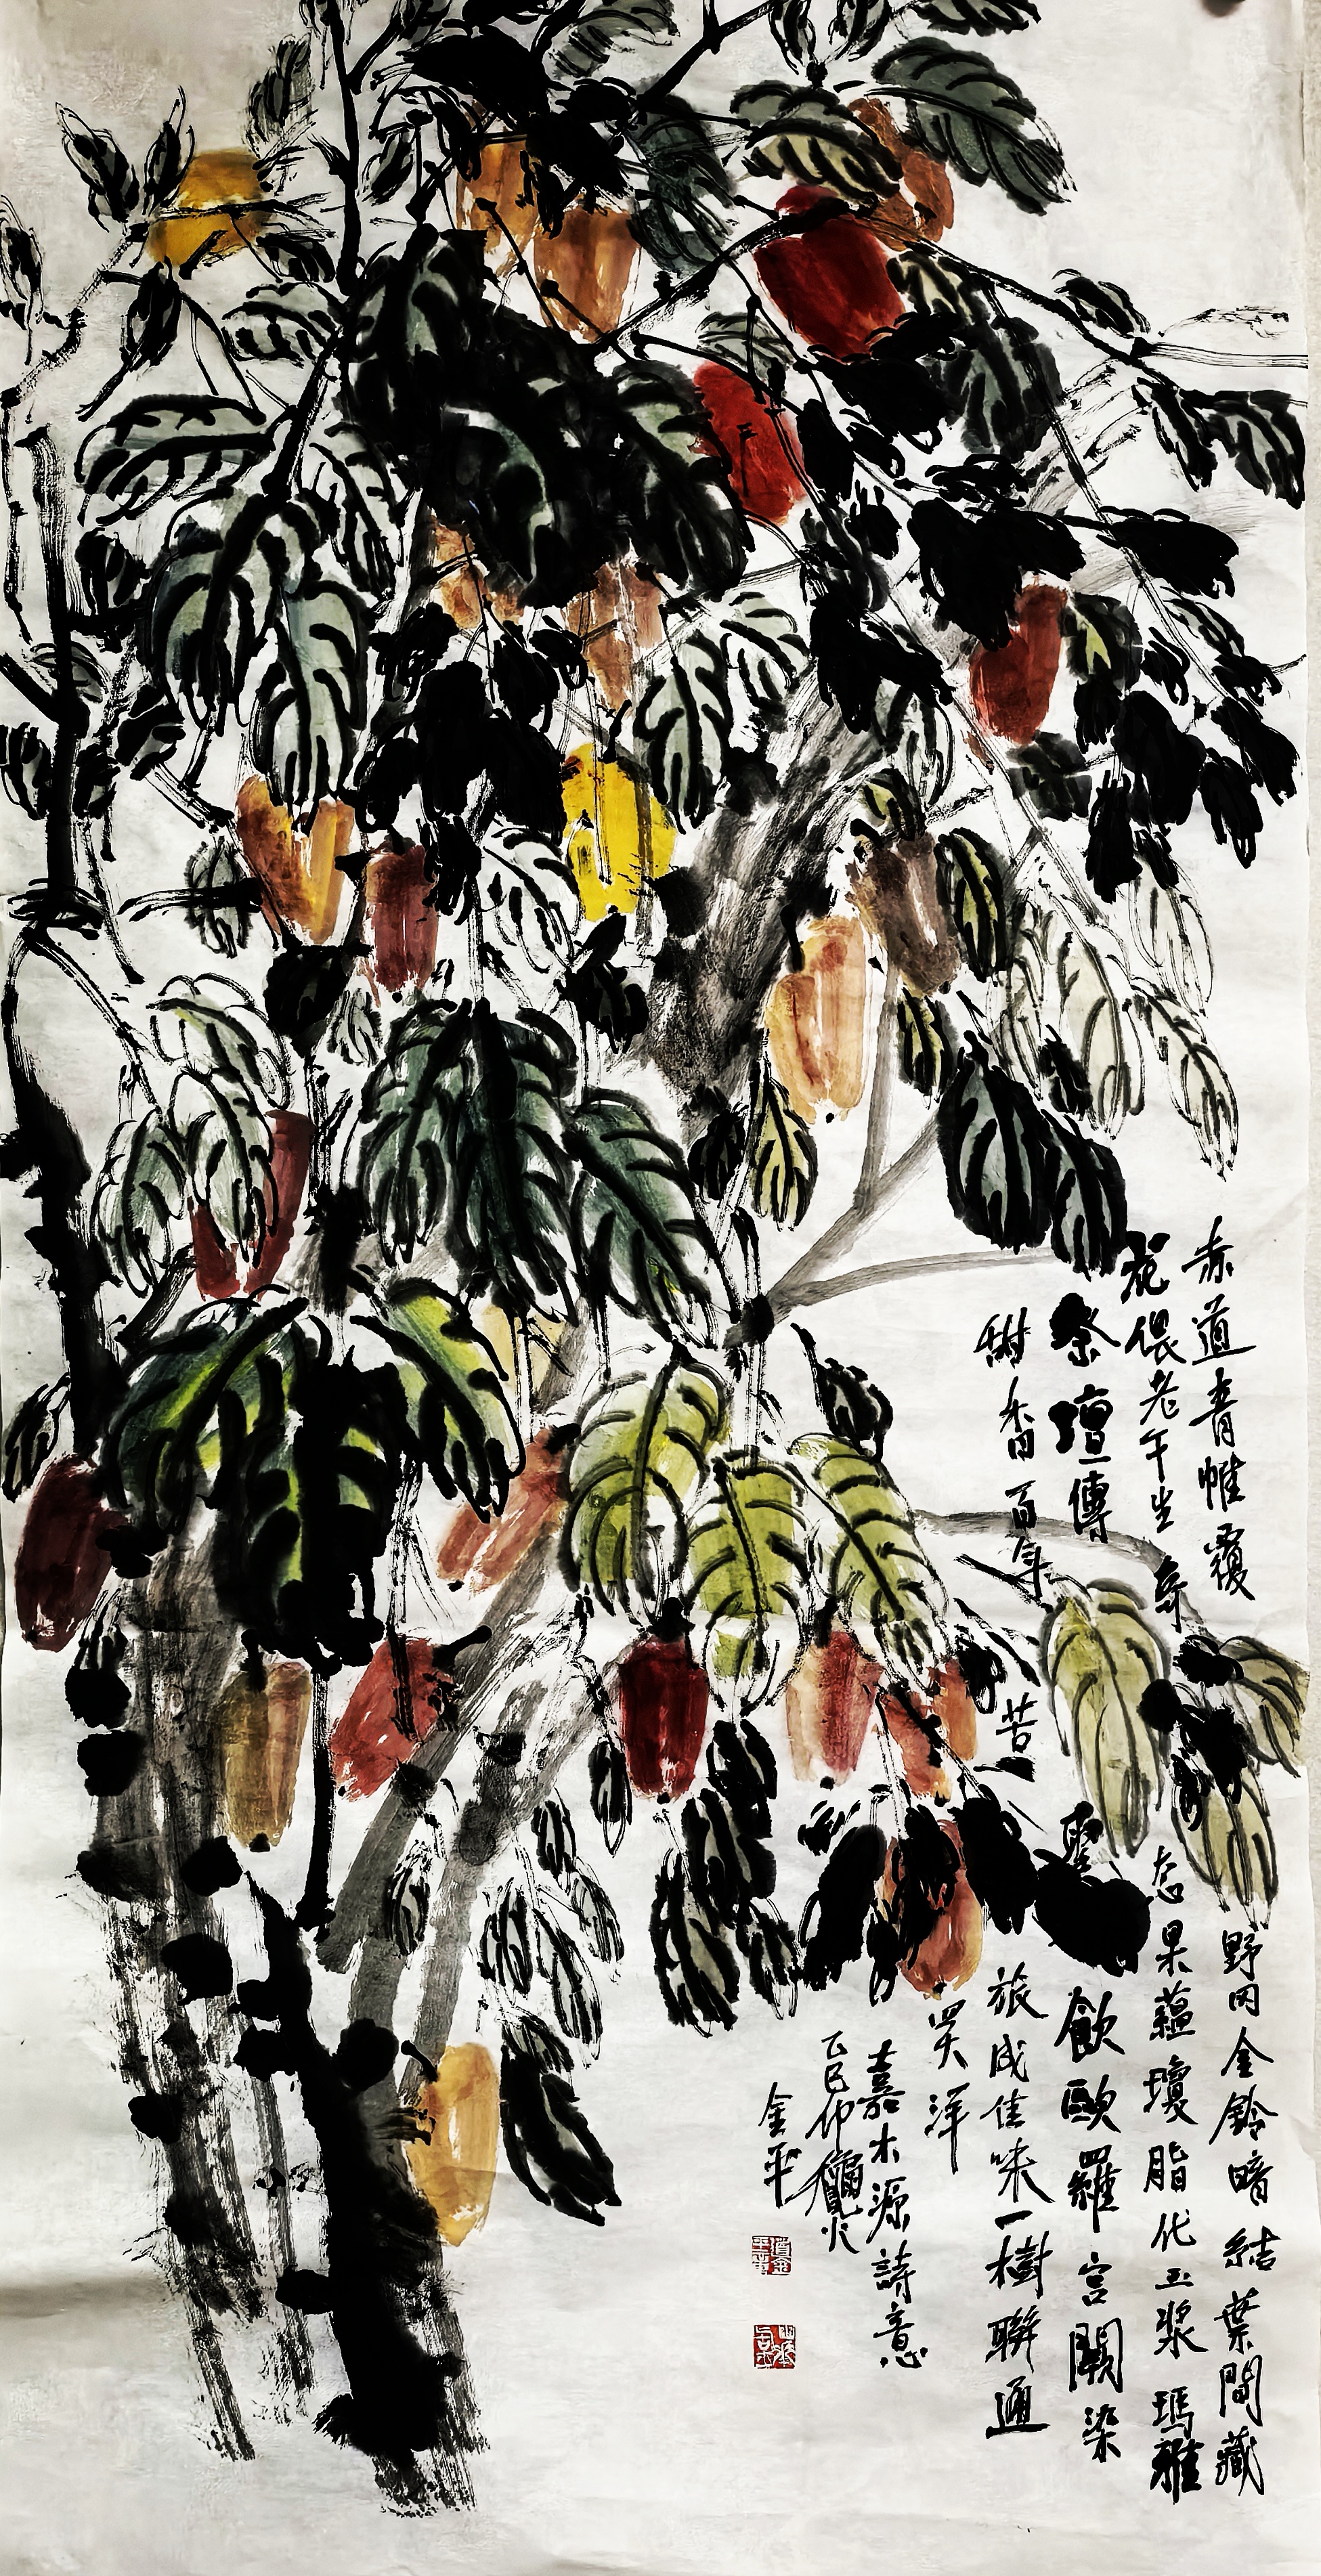 赤道青帷覆野岡金鈴暗結葉間藏
花偎老午生奇态果蘊瓊脂化玉漿瑪雅
祭壇傳聖飲歐羅宮闕染
甜香百年苦旅成佳味一樹聯通
四大洋
嘉木源詩意
乙巳仲
金平